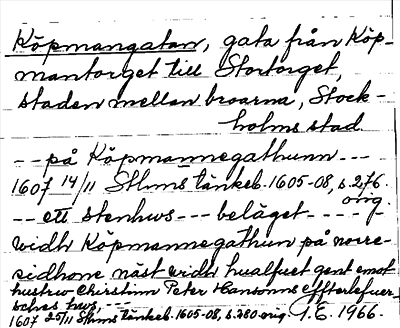 Köpmangatan, gata från Köp-
mantorget till Stortorget,
staden mellan broarna, Stock-
holms stad
-- på Köpmannegathunn ---
1607 14/11 Sthms tänkeb. 1605-08, s. 276.
orig.
-- ett stenhws --- beläget ----
widh Köpmannegathun på norre-
sidhone näst widh hwalfuet gent emot
hustrw Chirstinn Peter Hansonns effterlefuer-
schas hws, ---
1607 25/11 Sthms tänkeb. 1605-08, s. 280 orig. 1.6. 1966.